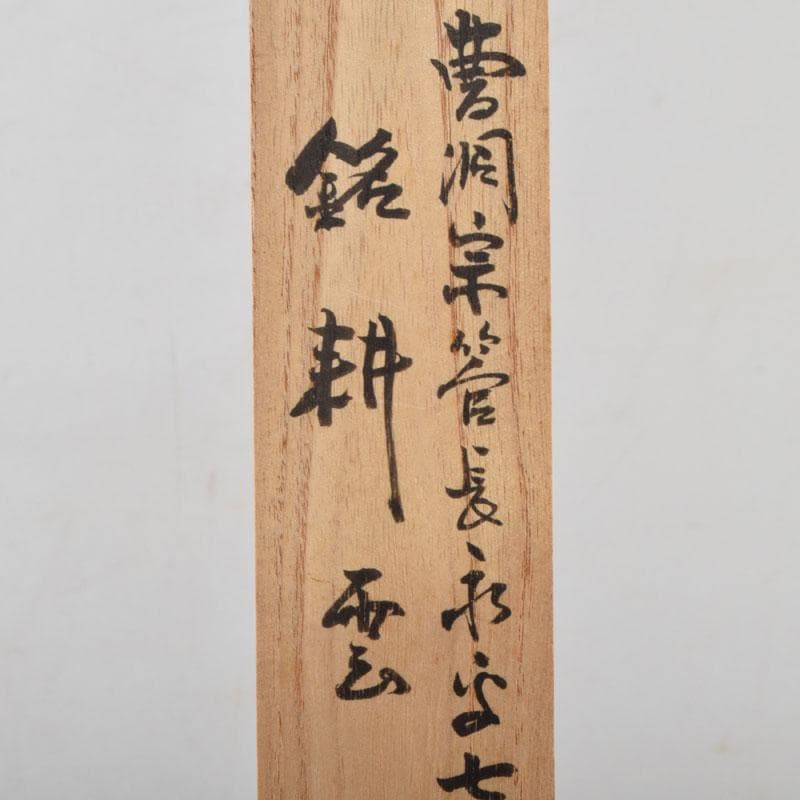 曹洞宗管長永平七
銘耕雲